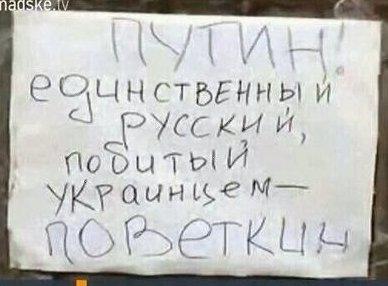 madske.tv
ПУТИН!
единственный
русский,
побитый
украинцем—
ПОВЕТКИН